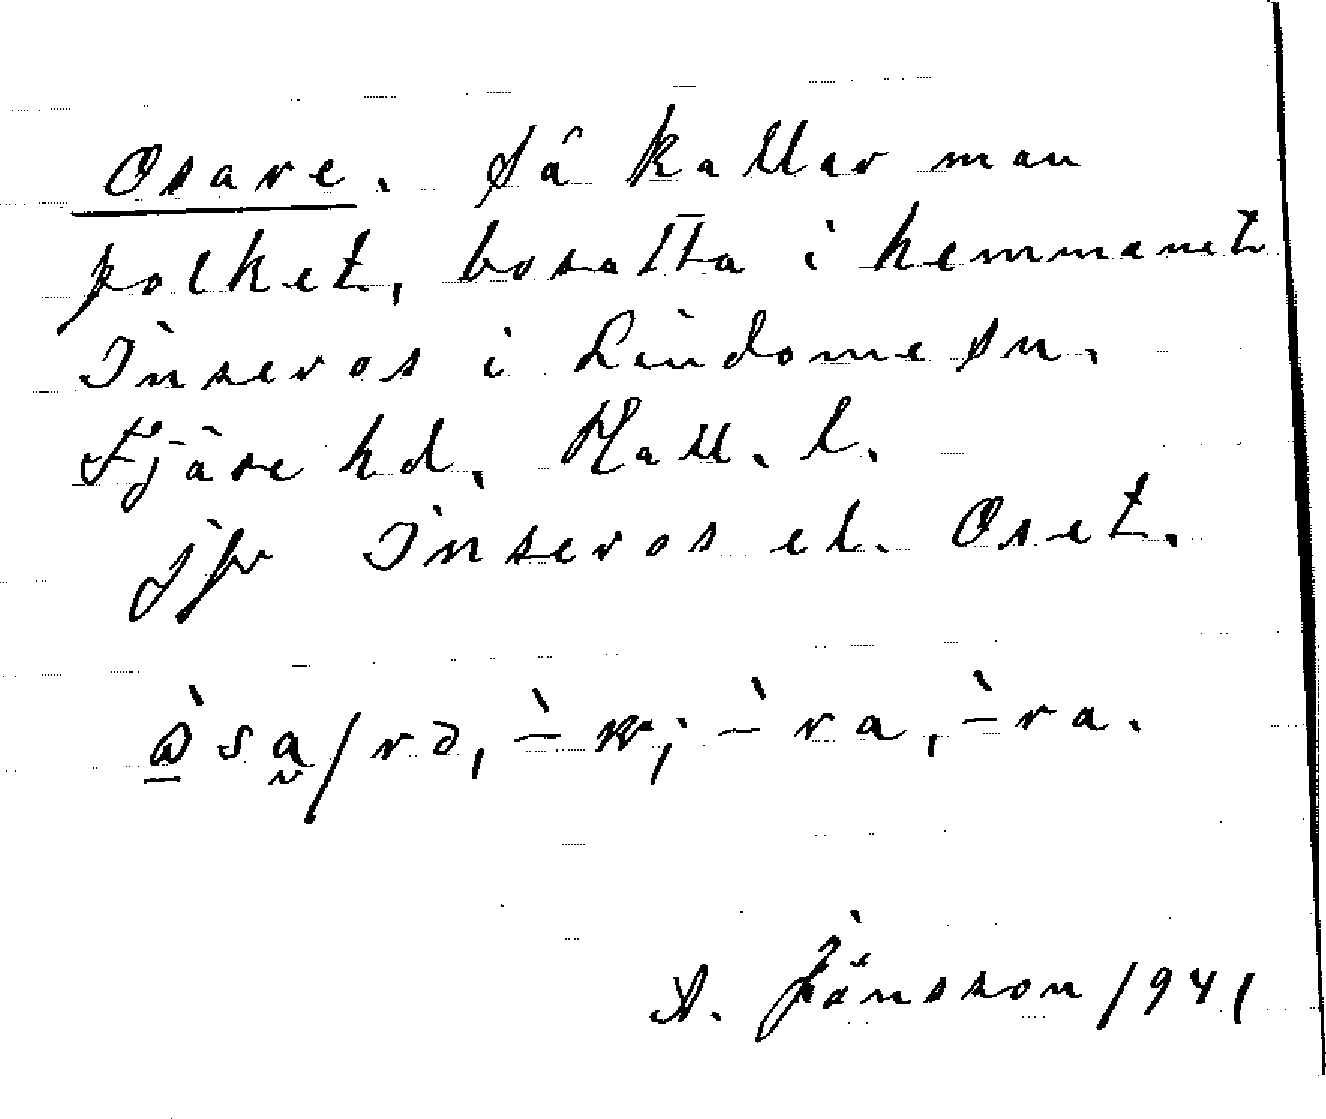 Osare. Så kallar man
folket, bosatta i hemmanet
Inseros i Lindome sn.
Fjäre hd. Hall. l.
jfr Inseros el. Oset.
A. Jönsson 1941